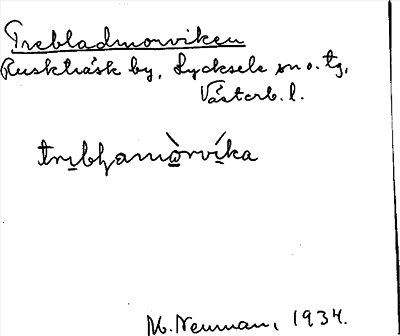 Trebladmorviken
Ruskträsk by, Lycksele sn o. tg,
Västerb. l.
trıbḷamòrvíka
M. Neuman, 1934.